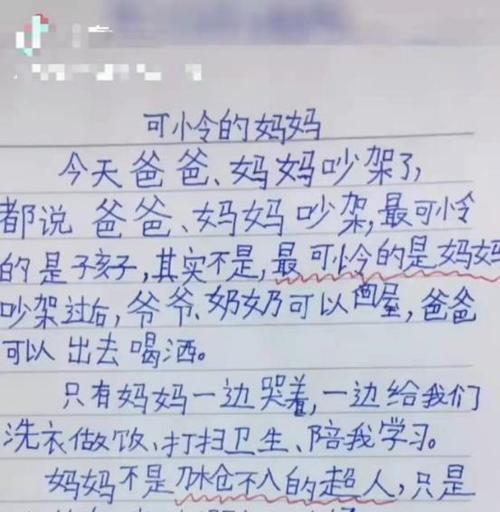 可怜的妈妈
今天爸爸、妈妈吵架了,
都说爸爸、妈妈吵架,最可怜
的是孩子,其实不是,最可怜的是妈妈
吵架过后,爷爷、奶奶可以回屋,爸爸
可以出去喝洒。
只有妈妈一边哭着,一边给我们
洗衣做饭、打扫卫生、陪我学习。
妈妈不是刀枪不入的超人,只是